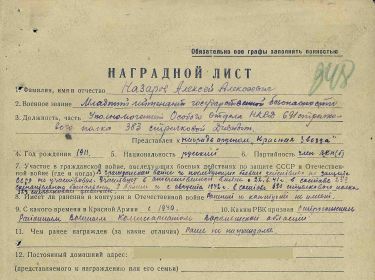 Обязательно все графы заполнить полностью
948
НАГРАДНОЙ ЛИСТ
1. Фамилия, имя и отчество Назаров Алексей Алексеевич
2. Военное звание Младший лейтенант государственной безопасности
3. Должность, часть Уполномоченный Особого Отдела НКВД 691 стрелко-
вого полка 383 стрелковой дивизии
Представляется к награде орденом "Красная Звезда"
4. Год рождения 1911 5. Национальность русский 6. Партийность член ВКП(б)
7. Участие в гражданской войне, последующих боевых действиях по защите СССР и Отечествен-
ной войне (где и когда) В гражданской войне и последующих боевых действиях по защите
СССР не участвовал. Участвует в отечественной войне с 22.6.41г. в составе
с августа 1942г. в составе 691 стрелкового полка
8. Имеет ли ранения и контузии в Отечественной войне ранений и контузий не имеет.
9. С какого времени в Красной Армии с 1940. 10. Каким РВК призван
Районным Военным Комиссариатом области
11. Чем ранее награжден (за какие отличия) Ранее не награждался
12. Постоянный домашний адрес:
(представляемого к награждению или его семьи)